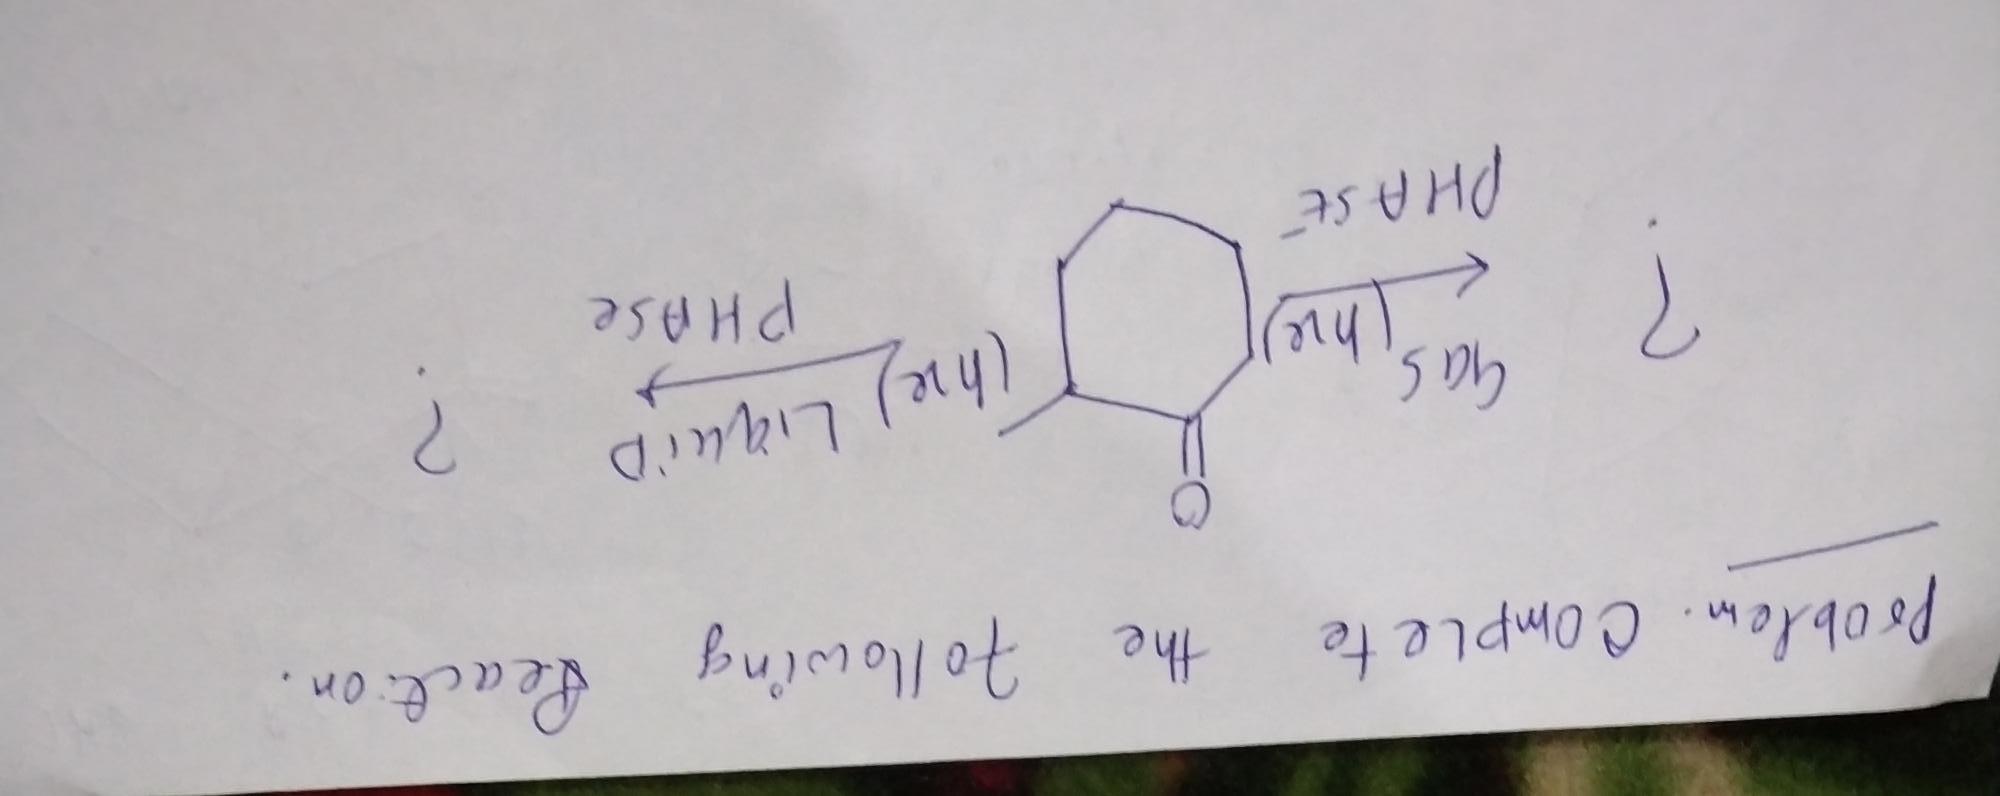 Problem. Complete the following Reaction.
O
? gas (hν) PHASE
(hν) Liquid PHASE ?